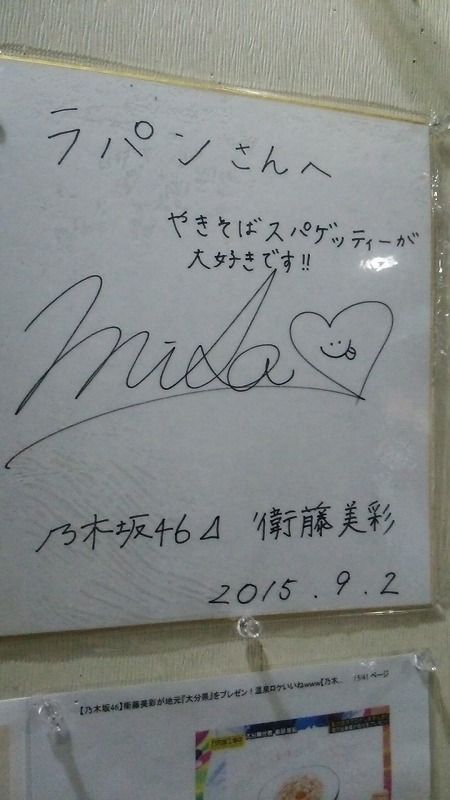 ラパンさんへ
やきそばスパゲッティーが
大好きです!!
misa
乃木坂46⊿ 衛藤美彩
2015.9.2
【乃木坂46】衛藤美彩が地元『大分県』をプレゼン！温泉ロケいいねwww【乃木...
ページ